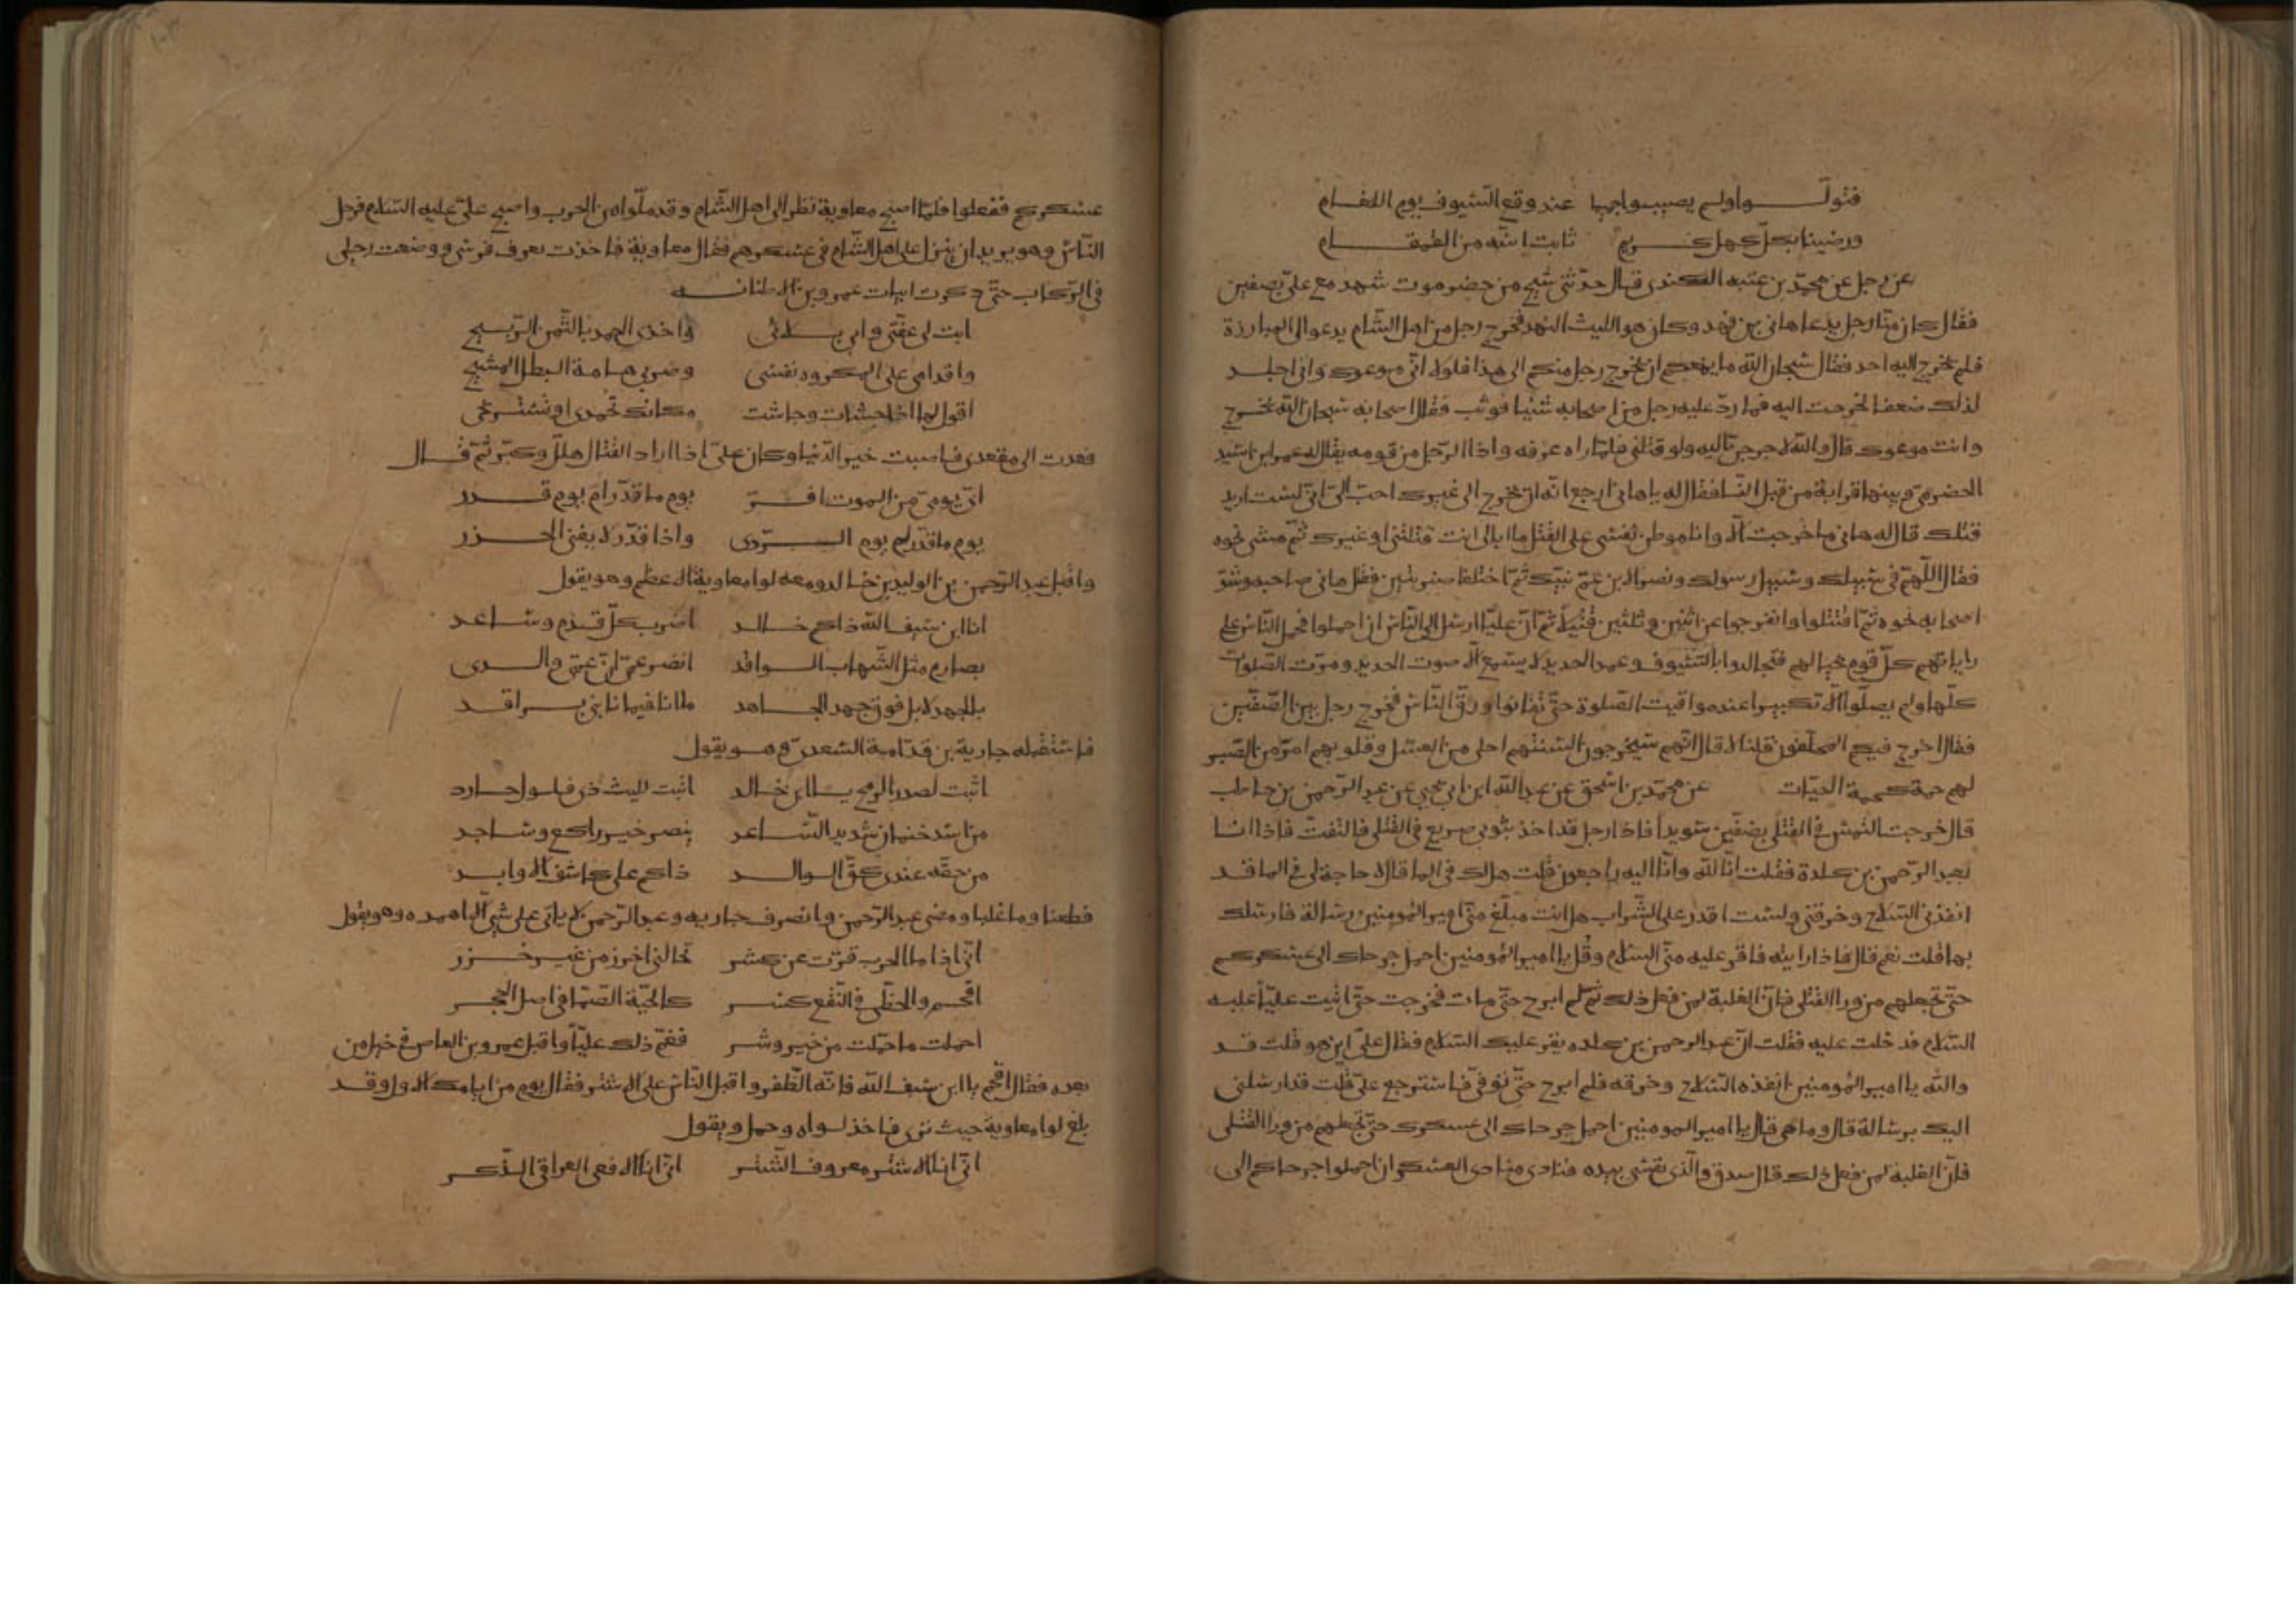 فتولـــوا ولم يصيبوا جميا عند وقع السّيوف يوم اللغام
ورضينا بكل كهل كريم ثابت اسّه من القمقام
عن رجل عن محمّد بن عتبه الكندى قال حدّثنى شيخ من حضرموت شهد مع علىّ بصفين
فقال كان منّا رجل يدعا هانى بن فهد وكان هو الليث النهد فخرج رجل من اهل الشّام يدعوا الى المبارزة
فلم يخرج اليه احد فقال سبحان الله ما يمنعكم ان يخرج رجل منكم الى هذا فلولا انّى موعوك وانى اجد
لذلك ضعفا لخرجت اليه فما ردّ عليه رجل من اصحابه شئيا فوثب فقال اصحابه سبحان الله تخرج
وانت موعوك قال والله لاخرجنّ اليه ولو قتلنى فلمّا راه عرفه واذا الرّجل من قومه يقال له عمر ابن اسّيد
الحضرمىّ وبينهما قرابة من قبل النسا فقال له يا هانى ارجع انّه ان يخرج الى غيرك احبّ الىّ انّى لست اريد
قتلك قال له هانى ما خرجت الّا وانا موطن نفسى على القتل ما ابالى انت قتلتنى او غيرك ثمّ مشى نحوه
فقال اللّهمّ فى سبيلك وسبيل رسولك ونصرا لابن عمّ نبيّك ثمّ اختلفا ضربتين فقتل هانى صاحبه وشدّ
اصحابه نحوه ثمّ اقتتلوا وانفرجوا عن اثنين وثلثين قتيلًا ثمّ انّ عليّا ارسل الى النّاس ان احملوا فحمل النّاس على
راياتهم كلّ قوم بحيالهم فتجالدوا بالسّيوف وعمد الحديد لا يسمع الّا صوت الحديد ومرّت الصّلوات
كلّها ولم يصلّوا الّا تكبيرا عند مواقيت الصّلوة حتّى تفانوا ورقّ النّاس فخرج رجل بين الصّفّين
فقال اخرج فيكم المحلّقون قلنا لا قال انّهم سيخرجون السنتهم احلى من العسل وقلوبهم امرّ من الصّبر
لهم حمة كحمة الحيّات عن محمّد بن اسحق عن عبد الله ابن ابى يحيى عن عبد الرّحمن بن حاطب
قال خرجت التمس فى القتلى بصفّين سويدا فاذا رجل قد اخذ بثوبى صريع فى القتلى فالتفتّ فاذا انا
بعبد الرّحمن بن كلدة فقلت انّا لله وانّا اليه راجعون قلت هل لك فى الما قال لا حاجة لى فى الما قد
انفذنى السّلاح وخرقنى ولست اقدر على الشّراب هل انت مبلّغ منّى امير المؤمنين رسالة فارسلك
بها قلت نعم قال فاذا رايته فاقر عليه منّى السّلام وقل يا امير المؤمنين احمل جرحاك الى عسكركم
حتّى تجعلهم من ورا القتلى فانّ الغلبة لمن فعل ذلك ثمّ لم ابرح حتّى مات فخرجت حتّى اتيت عليّا عليه
السّلام فدخلت عليه فقلت انّ عبد الرحمن بن كلده يقر عليك السّلام فقال علىّ اين هو قلت قد
والله يا امير المؤمنين انفذه السّلاح وخرقه فلم ابرح حتّى توفّى فاسترجع علىّ قلت قد ارسلنى
اليك برسالة قال وما هى قال يا امير المومنين احمل جرحاك الى عسكرك حتّى تجعلهم من ورا القتلى
فانّ الغلبة لمن فعل ذلك قال صدق والّذى نفسى بيده فنادى منادى العسكر ان احملوا جرحاكم الى
عسكركم ففعلوا فلمّا اصبح معاوية نظر الى اهل الشّام وقد ملّوا من الحرب واصبح علىّ عليه السّلام فرحل
النّاس وهو يريد ان ينزل على اهل الشّام فى عسكرهم فقال معاوية فاخذت بعرف فرسى ووضعت رجلى
فى الرّكاب حتّى ذكرت ابيات عمرو بن الاطنانه
ابت لى عفّتى وابى بلائى واخذى الحمد بالثّمن الرّبيح
واقدامى على المكروه نفسى وضربى هامة البطل المشيح
اقول لها اذا جشات وجاشت مكانك تحمدى او تستريحى
فعدت الى مقعدى فاصبت خير الدّنيا وكان علىّ اذا اراد القتال هلّل وكبّر ثمّ قال
اىّ يومىّ من الموت افرّ يوم ما قدّر ام يوم قدر
يوم ما قدّر لم يوم الردى واذا قدّر لا يغنى الحذر
واقبل عبد الرّحمن بن الوليد بن خالد ومعه لوا معاوية الاعظم وهو يقول
انا ابن سيف الله ذاكم خالد اضرب كلّ قدم وساعد
بصارم مثل الشّهاب الواقد انصر عمّى انّ عمّى والدى
بالجهد لا بل فوق جهد الجاهد ما انا فيما نابنى براقد
فاستقبله جارية بن قدّامة السّعدى وهو يقول
اثبت لصدر الرمح يا ابن خالد اثبت لليث ذى فلول حارد
من اسد خفان شديد السّاعد ينصر خير راكع وساجد
من حقّه عندى كحقّ الوالد ذاكم على كاشف الاوابد
فطعنا وما غلبا ومضى عبد الرّحمن وانصرف جاريه وعبد الرّحمن لا ياتى على شى الّا اهمده وهو يقول
انّى اذا ما الحرب فرّت عن كشر تخالنى اخزر من غير خزر
اقحم والخطّى فى النّقع كشر كالحيّة الصّمّا فى اصل الحجر
احملت ما حمّلت من خير وشر فغمّ ذلك عليّا واقبل عمرو بن العاص فى خيل من
بعده فقال اقحم يا ابن سيف الله فانّه الظّفر واقبل النّاس على الاشتر فقال يوم من ايامك الاول وقد
بلغ لوا معاوية حيث ترى فاخذ لواه وحمل ويقول
انّى انا الاشتر معروف الشّتر انّى انا الافعى العراقى الذّكر